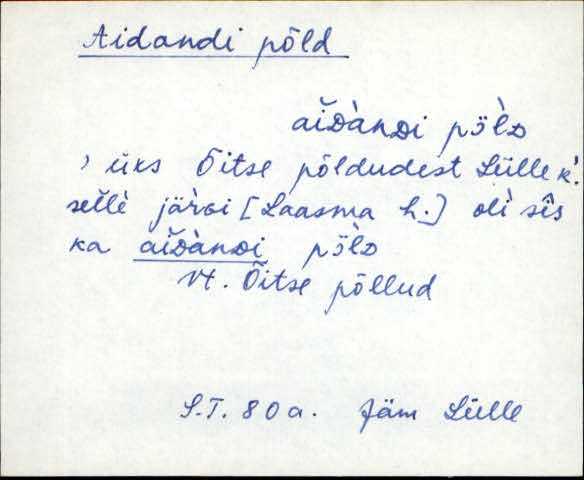 Aidandi põld
aiᴅ̀anᴅi pɜ̈̀lᴅ
, üks Õitse põldudest Lülle k.
sellè järvi [Laasma h.] oli sîs
ka aiᴅ̀anᴅi pɜ̈̀lᴅ
Vt. Õitse põllud
S.T. 80 a. Jäm Lülle